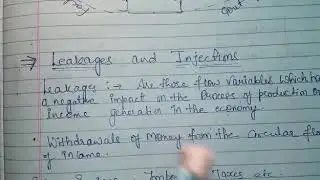 ⇒ Leakages and Injections
Leakages :→ Are those flow variables which ha
a negative impact on the Process of production or
income generation in the economy.
• Withdrawals of Money from the Circular flo
of Income.
Taxes etc.